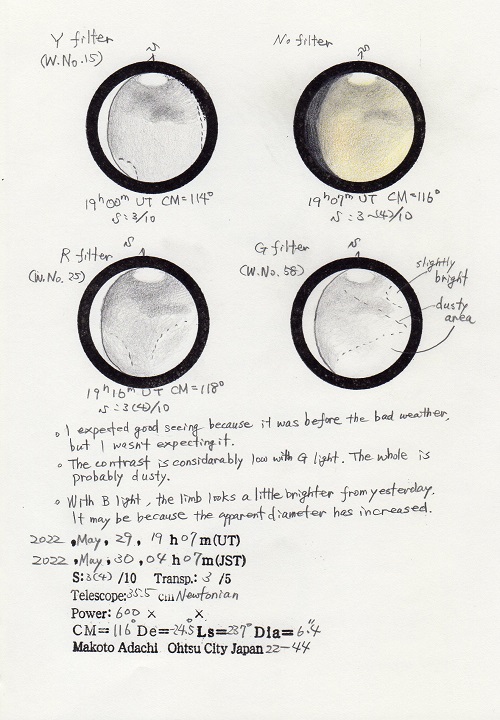 Y filter
(W.No.15)
S
19h00m UT CM=114°
S:3/10
No filter
S
19h07m UT CM=116°
S:3~(4)/10
R filter
(W.No.25)
S
19h16m UT CM=118°
S:3(4)/10
G filter
(W.No.58)
S
slightly
bright
dusty
area
。I expected good seeing because it was before the bad weather,
but I wasn't expecting it.
。The contrast is considarably low with G light. The whole is
probably dusty.
。With B light, the limb looks a little brighter from yesterday.
It may be because the apparent diameter has increased.
2022 ,May, 29, 19 h 07 m(UT)
2022 ,May, 30, 04 h 07 m(JST)
S:3(4) /10 Transp.: 3 /5
Telescope:35.5 cm Newtonian
Power: 600 × ×
CM=116° De=-24.5° Ls=237° Dia=6."4
Makoto Adachi Ohtsu City Japan 22-44